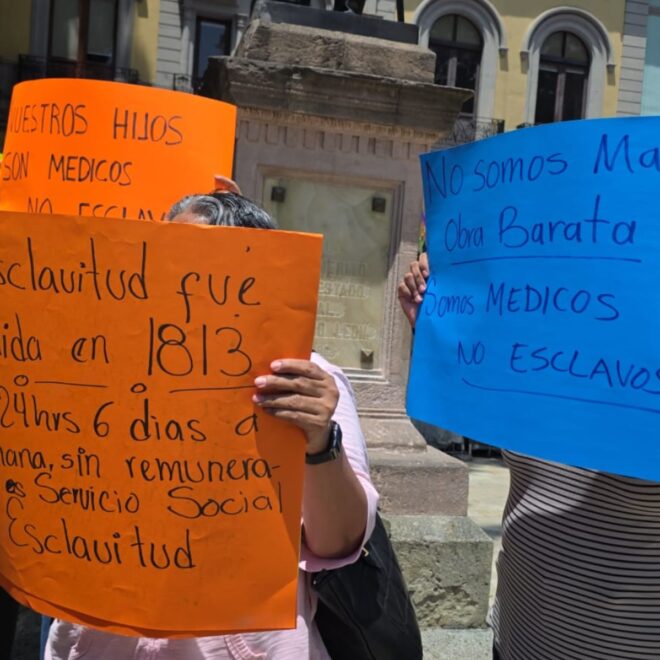 UESTROS HIJOS
SON MEDICOS
NO ESCLAV
sclavitud fué
ida en 1813
24hrs 6 dias a
mana, sin remunera-
es Servicio Social
Esclavitud
No somos Ma
Obra Barata
Somos MEDICOS
NO ESCLAVOS